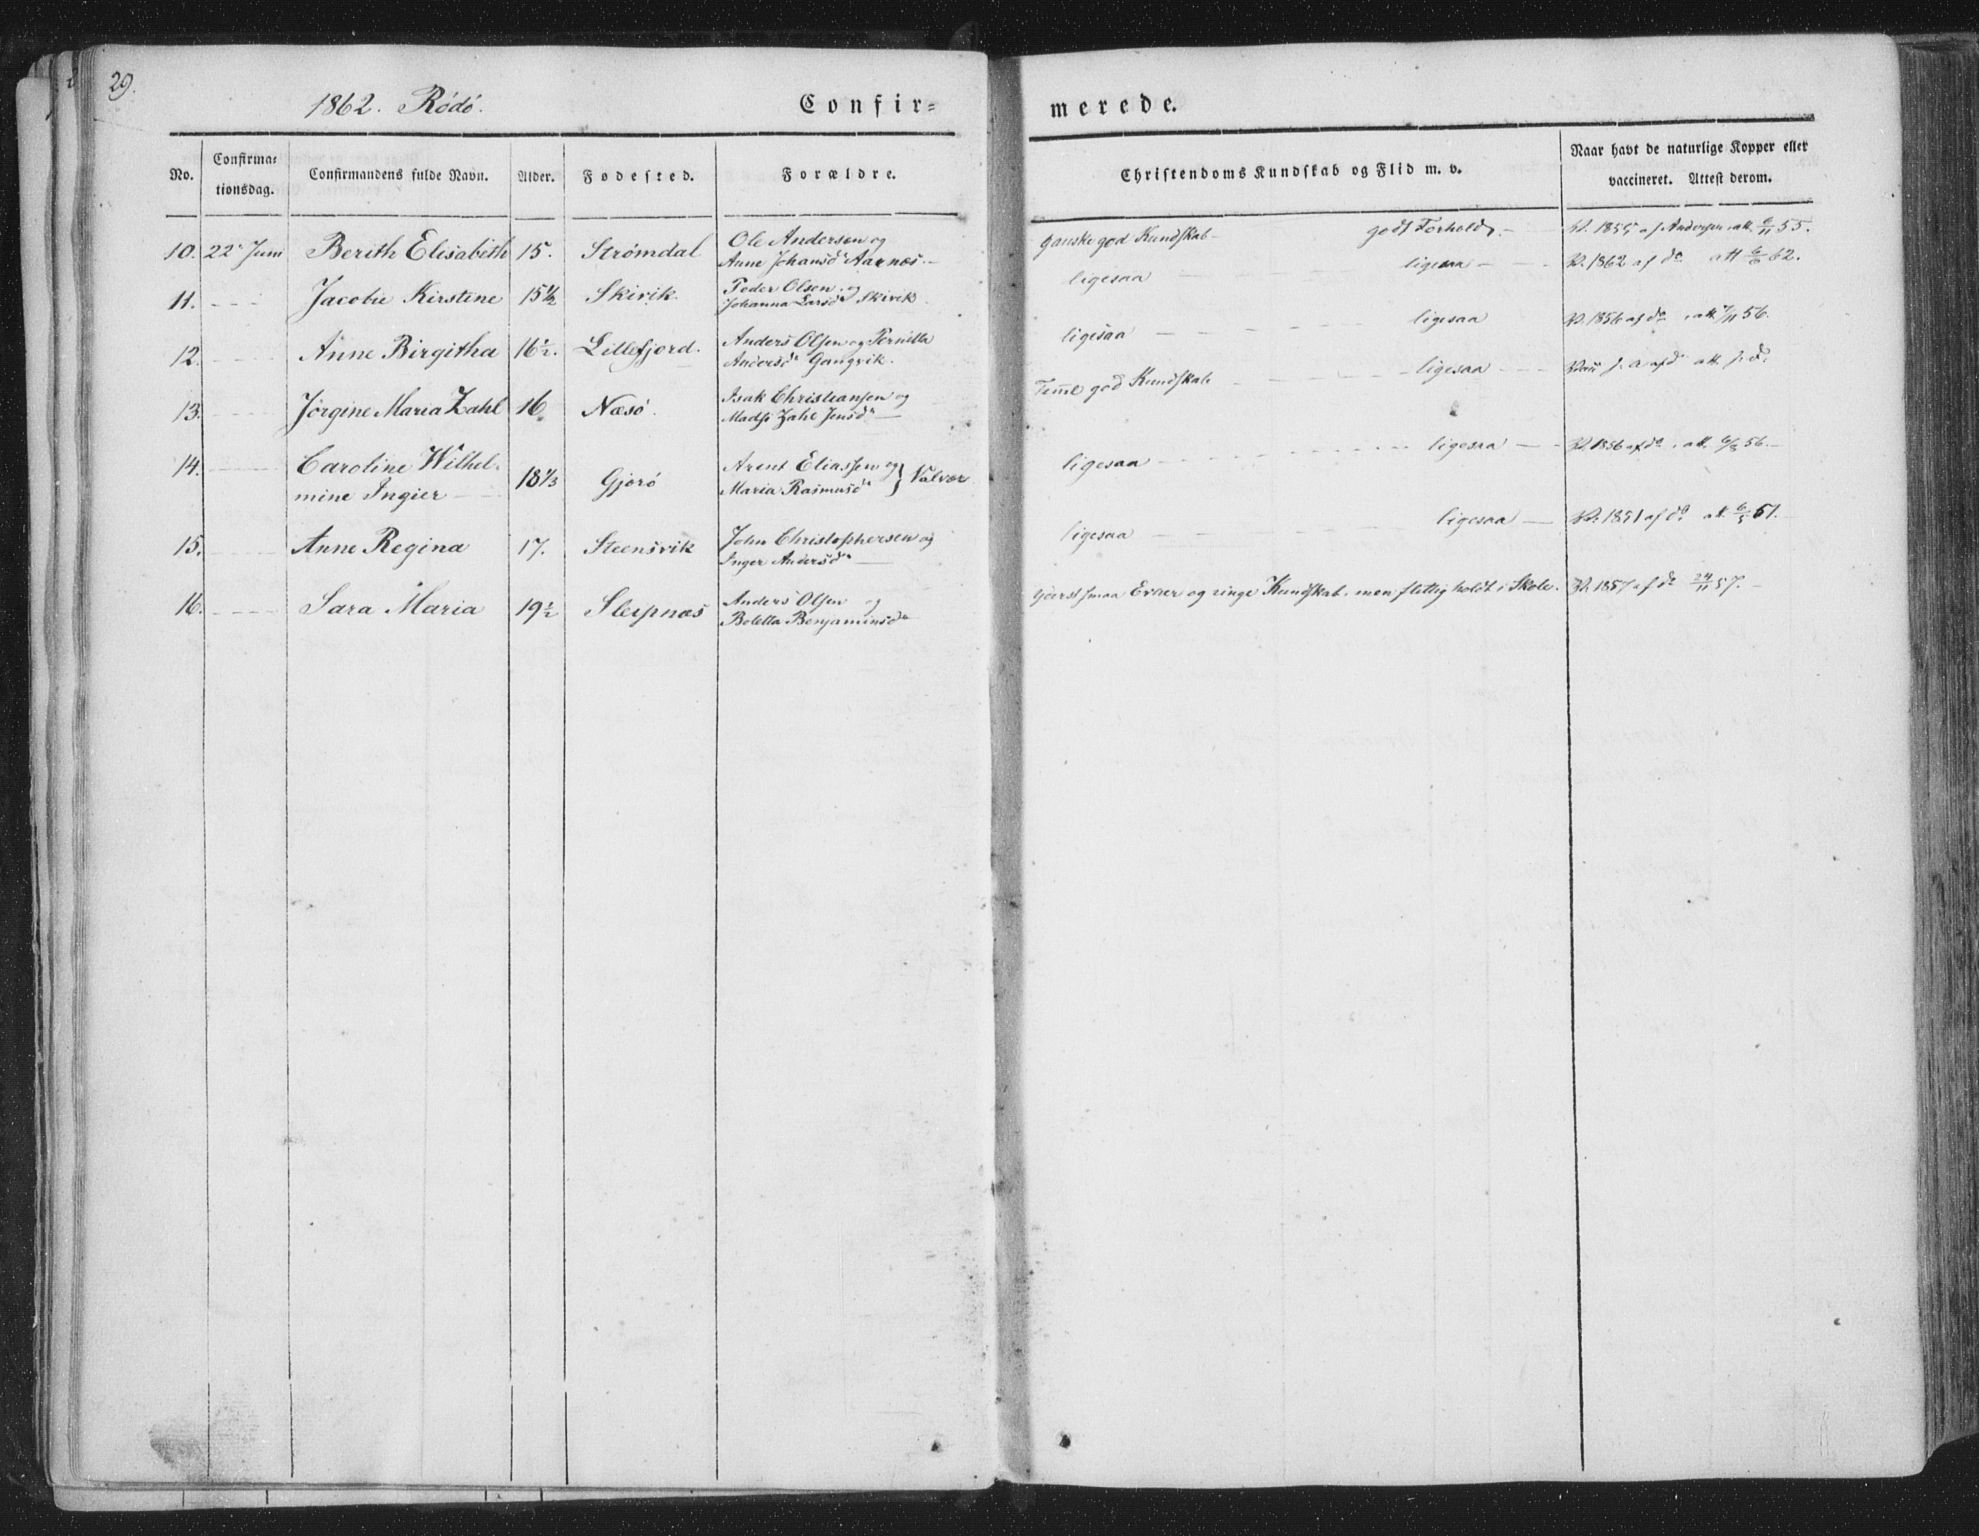 29.
1862. Rödö.
Confir=
merede.
No.
Confirma=
tionsdag.
Confirmandens fulde Navn.
Alder.
Fødested.
Forældre.
Christendoms Kundskab og Flid m. v.
Naar havt de naturlige Kopper eller
vaccineret. Attest derom.
10. 22 Juni Berith Elisabeth 15. Strömdal Ole Andersen og
Anne Johansd Aarnæs
Ganske god Kundskab godt Forhold V. 1855 af Andersen att. 6/11 55.
11. Jacobie Kirstine 15½ Skivik Peder Olsen og
Johanna Larsd Skivik
ligesaa ligesaa V. 1862 af do att 6/6 62.
12. Anne Birgitha 16½. Lillefjord. Anders Olsen og Pernilla
Andersd Gangvik.
ligesaa ligesaa V. 1856 af do att. 56.
13. Jörgine Maria Zahl 16 Næsö. Isak Christiansen og
Zahl Jensd
god Kundskab ligesaa
14. Caroline Wilhel-
mine Ingier 18⅓ Gjerö Arent Eliassen og
Maria Rasmusd } Valvær
ligesaa ligesaa V. 1856 af do. att. 56.
15. Anne Regina 17. Steensvik John Christophersen og
Inger Andersd
ligesaa ligesaa V. 1851 af do att. 6/5 51.
16. Sara Maria 19½ Slejpnæs Anders Olsen og
Boletta Benjaminsd
smaa Evner og ringe Kundskab, men flittig holdt i Skole. V. 1857 af do 24/11 57.